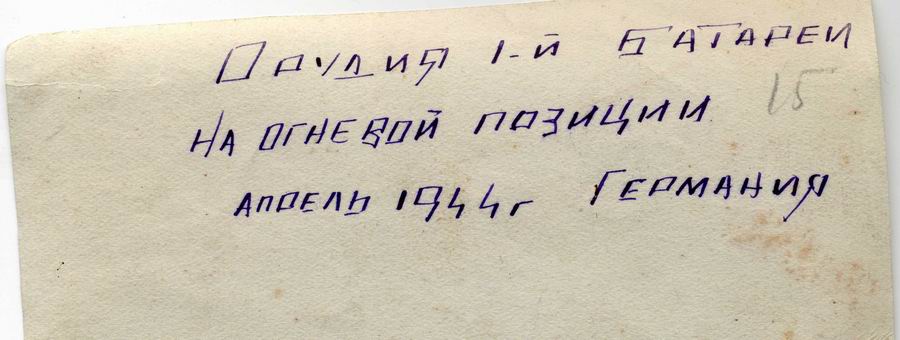 Орудия 1-й БАТАРЕИ
15
НА ОГНЕВОЙ ПОЗИЦИИ
АПРЕЛЬ 1944г ГЕРМАНИЯ